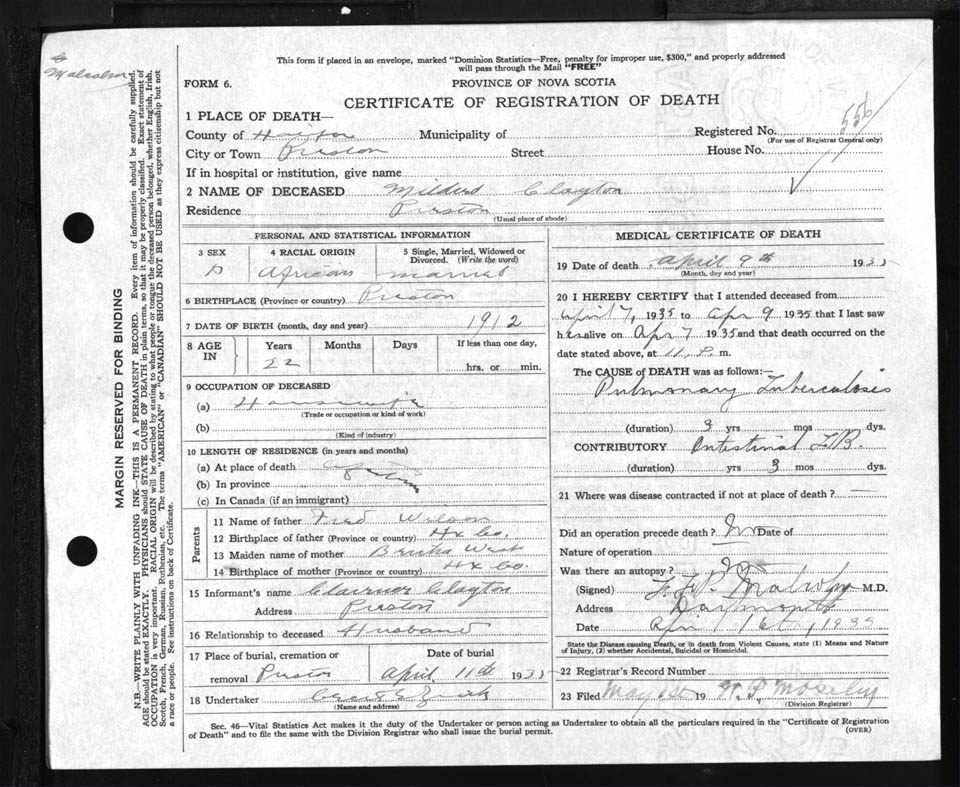 Malcolm
This form if placed in an envelope, marked "Dominion Statistics—Free, penalty for improper use, $300," and properly addressed
will pass through the Mail "FREE"
FORM 6.
PROVINCE OF NOVA SCOTIA
CERTIFICATE OF REGISTRATION OF DEATH
556
1 PLACE OF DEATH—
County of Halifax Municipality of Registered No.
(For use of Registrar General only)
City or Town Preston Street House No.
If in hospital or institution, give name
2 NAME OF DECEASED Mildred Clayton
Residence Preston
(Usual place of abode)
PERSONAL AND STATISTICAL INFORMATION
3 SEX
4 RACIAL ORIGIN African
5 Single, Married, Widowed or Divorced. (Write the word) married
6 BIRTHPLACE (Province or country) Preston
7 DATE OF BIRTH (month, day and year) 1912
8 AGE IN Years Months Days If less than one day,
22 hrs. or min.
9 OCCUPATION OF DECEASED
(a) Housewife
(Trade or occupation or kind of work)
(b)
(Kind of industry)
10 LENGTH OF RESIDENCE (in years and months)
(a) At place of death
(b) In province
(c) In Canada (if an immigrant)
Parents
11 Name of father Fred Wilson
12 Birthplace of father (Province or country) Hx Co.
13 Maiden name of mother West
14 Birthplace of mother (Province or country) Hx Co.
15 Informant's name Clayton
Address Preston
16 Relationship to deceased Husband
17 Place of burial, cremation or removal Preston
Date of burial April 11th 1935
18 Undertaker
(Name and address)
MEDICAL CERTIFICATE OF DEATH
19 Date of death April 9th 1935
(Month, day and year)
20 I HEREBY CERTIFY that I attended deceased from
April 7, 1935 to Apr 9 1935 that I last saw
her alive on Apr 7 1935 and that death occurred on
date stated above, at 11 P. m.
The CAUSE of DEATH was as follows:—
Pulmonary Tuberculosis
(duration) 3 yrs mos dys.
CONTRIBUTORY Intestinal T.B.
(duration) yrs 3 mos dys.
21 Where was disease contracted if not at place of death? —
Did an operation precede death? No Date of
Nature of operation
Was there an autopsy? No
(Signed) M.D.
Address Dartmouth
Date 1935
State the Disease causing Death, or in death from Violent Causes, state (1) Means and Nature
of Injury, (2) whether Accidental, Suicidal or Homicidal.
22 Registrar's Record Number
23 Filed May 19
(Division Registrar)
Sec. 46—Vital Statistics Act makes it the duty of the Undertaker or person acting as Undertaker to obtain all the particulars required in the "Certificate of Registration
of Death" and to file the same with the Division Registrar who shall issue the burial permit.
(OVER)
MARGIN RESERVED FOR BINDING
N.B.—WRITE PLAINLY WITH UNFADING INK—THIS IS A PERMANENT RECORD. Every item of information should be carefully supplied.
AGE should be stated EXACTLY. PHYSICIANS should STATE CAUSE OF DEATH in plain terms, so that it may be properly classified. Exact statement of
OCCUPATION is very important. RACIAL ORIGIN will be described by stating to what people or tongue the deceased person belonged, whether English, Irish,
Scotch, French, German, Russian, Ruthenian, etc. The terms "AMERICAN" or "CANADIAN" SHOULD NOT BE USED as they express citizenship but not
a race or people. See instructions on back of Certificate.